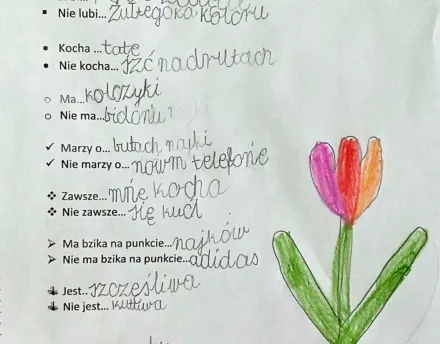 Nie lubi... żułtegoka koloru
Kocha ...tatę
Nie kocha... iźć na drutach
Ma...kolczyki
Nie ma...bidonu
Marzy o... butach najki
Nie marzy o...nowm telefonie
Zawsze...mnę kocha
Nie zawsze...się kuci
Ma bzika na punkcie...najków
Nie ma bzika na punkcie...adidas
Jest..szczęśliwa
Nie jest...